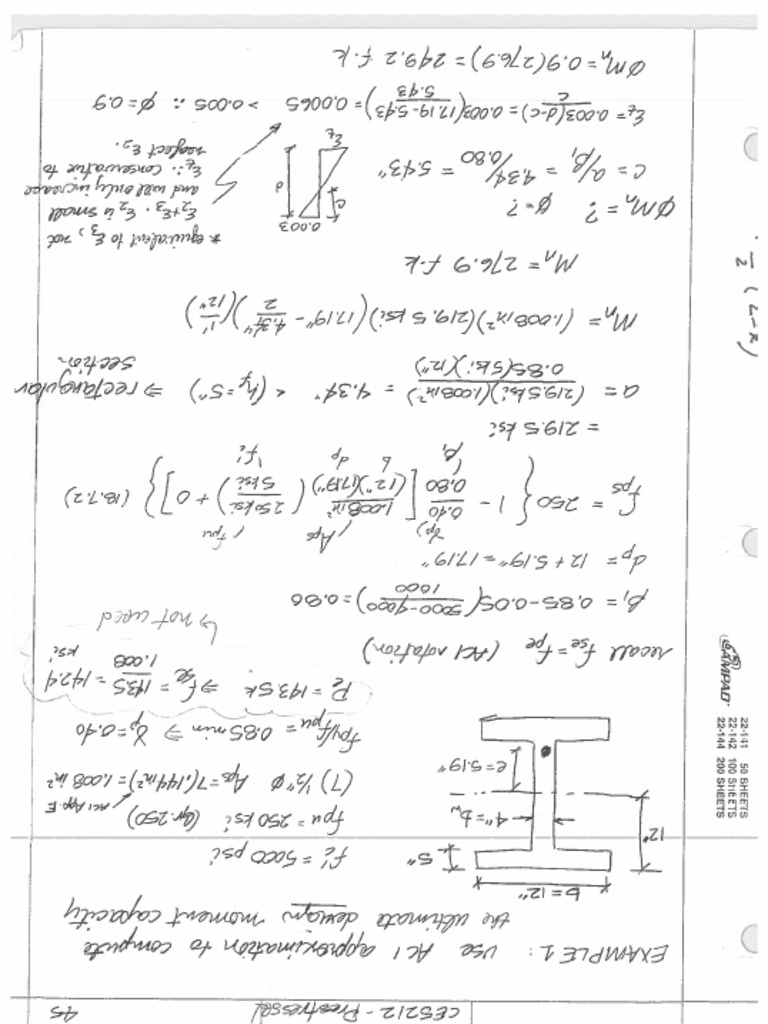 CE5212 - Prestressed
45
EXAMPLE 1: USE ACI approximation to compute
the ultimate design moment capacity
b = 12"
5"
12"
4" = bw
e = 5.19"
f'c = 5000 psi
fpu = 250 ksi (Gr. 250)
ACI App. E
(7) 1/2" ø Aps = 7(.144 in²) = 1.008 in²
fpy/fpu = 0.85 min ⇒ γp = 0.40
Pe = 143.5k ⇒ fse = 143.5/1.008 = 142.4 ksi
↳ not used
recall fse = fpe (ACI notation)
β1 = 0.85 - 0.05((5000-4000)/1000) = 0.80
dp = 12 + 5.19" = 17.19"
fps = 250 { 1 - 0.40/0.80 [ 1.008 in²/(12")(17.19") (250 ksi/5 ksi) + 0 ] } (18.7.2)
γp Aps fpu
β1 b dp f'c
= 219.5 ksi
a = (219.5 ksi)(1.008 in²)/0.85(5 ksi)(12") = 4.34" < (hf = 5") ⇒ rectangular section
Mn = (1.008 in²)(219.5 ksi)(17.19" - 4.34"/2)(1'/12")
Mn = 276.9 f·k
øMn = ? ø = ?
c = a/β1 = 4.34/0.80 = 5.43"
0.003
c
d
εt
* equivalent to ε3, not
ε2+ε3. ε2 is small
and will only increase
εt ∴ conservative to
neglect ε2.
εt = 0.003((d-c)/c) = 0.003((17.19-5.43)/5.43) = 0.0065 > 0.005 ∴ ø = 0.9
øMn = 0.9(276.9) = 249.2 f·k
22-141 50 SHEETS
22-142 100 SHEETS
22-144 200 SHEETS
AMPAD
1/2 (L-x)